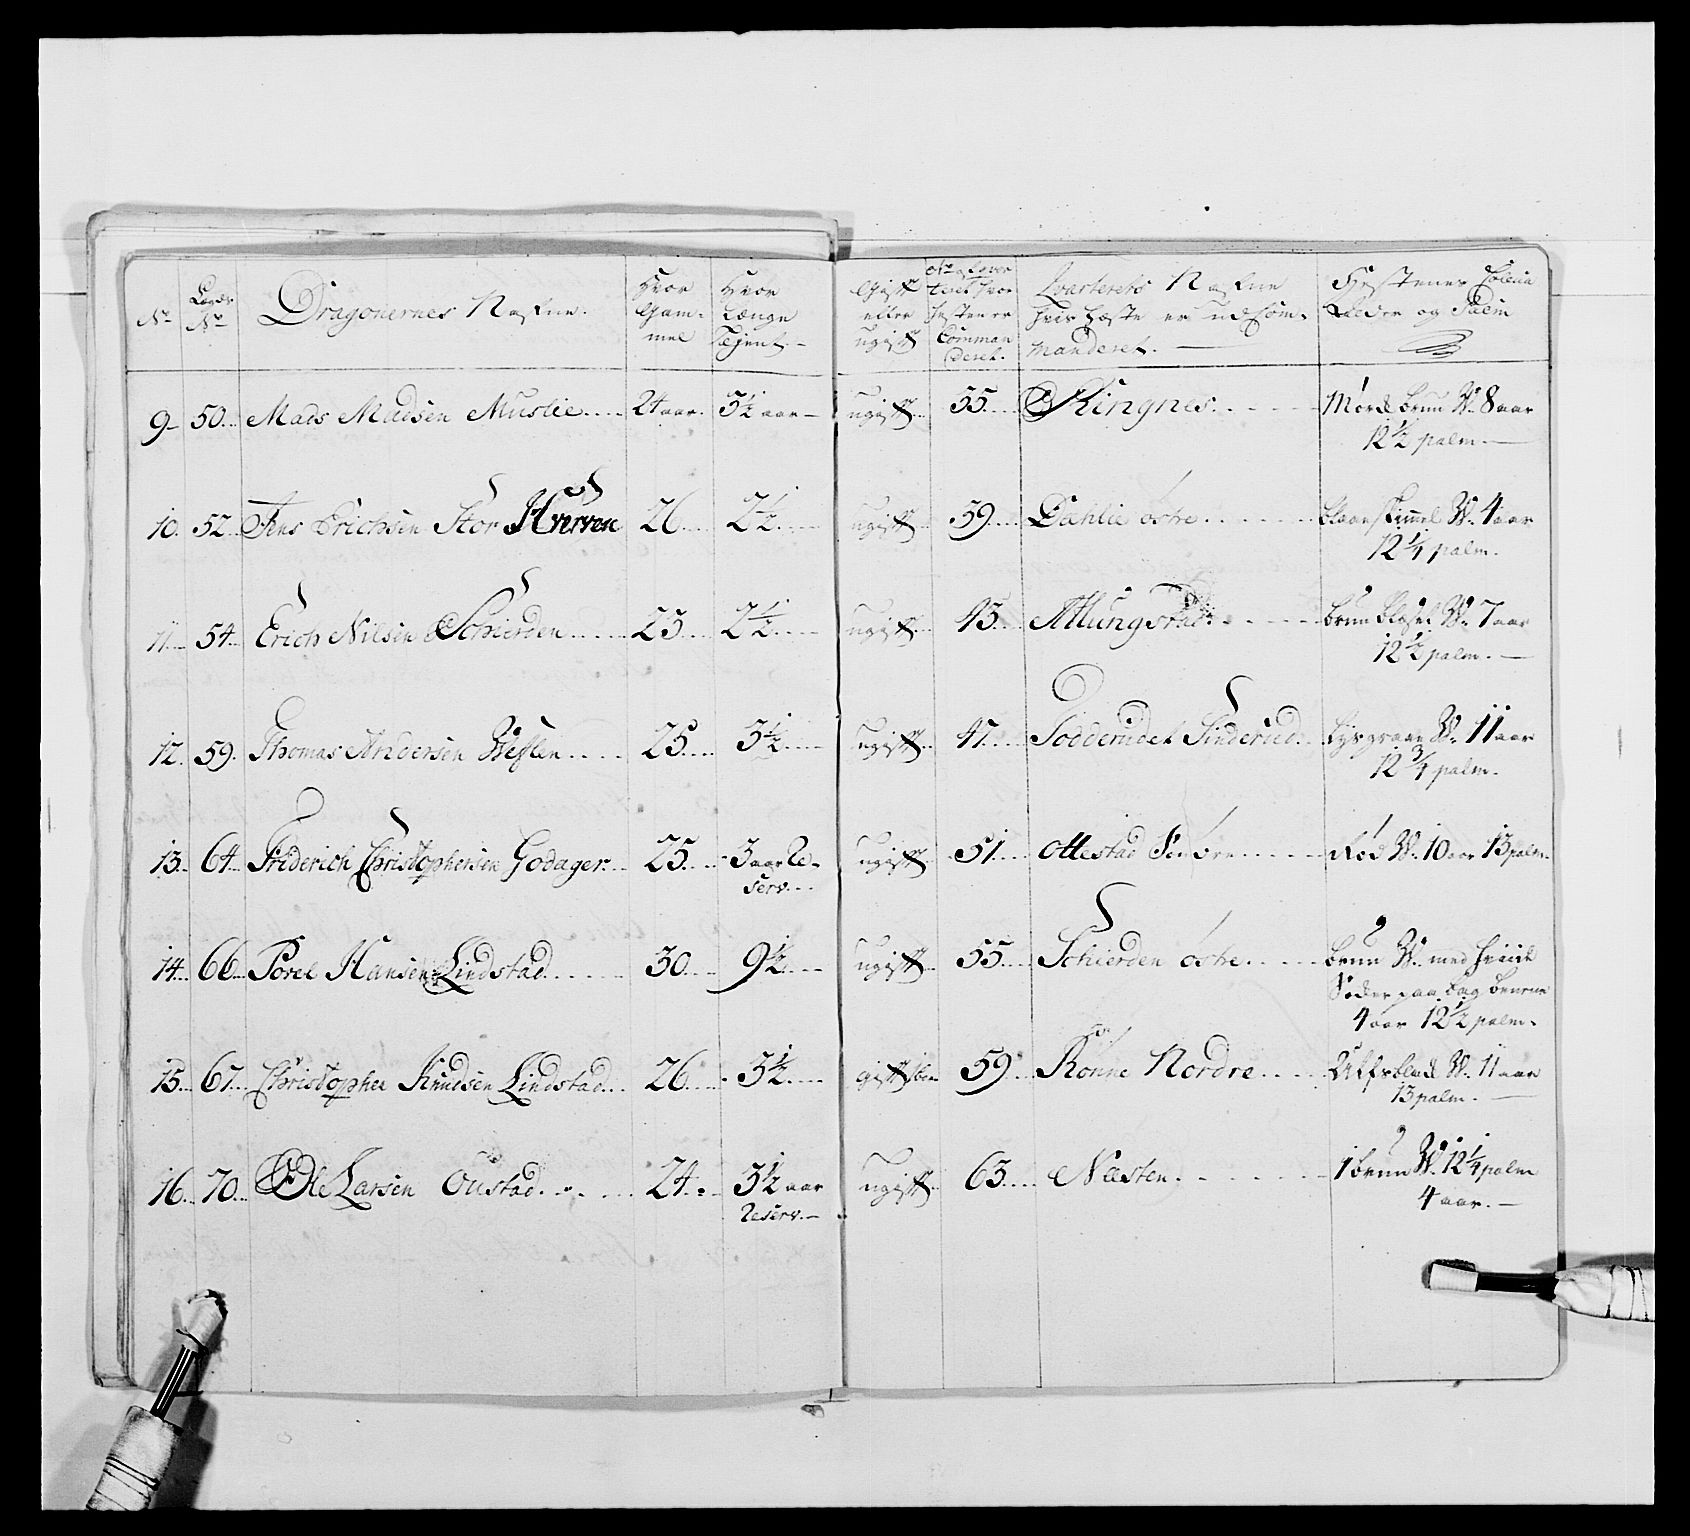 No Qvar: No Dragonernes Nafne. Hvor Gam- mel Hvor Længe Tjent. Gift eller ugift No af qvar- teret hvor hesten er Comman deret. Qvarterets Nafne hvis Hæste er udCom- manderet. Hestenes Coleur Alder og Palm
9 50. Mads Madsen Muslie. 24 aar. 3½ aar ugift 55. Ringnes. Mørk brun W. 8 aar
12½ palm.
10. 52. Jens Erichsen Stor Hverven 26 2½ ugift 59. Dahlie østre. blaaeskimmel W. 4 aar
12¼ palm.
11. 54. Erich Nilsen Schierden 25 2½ ugift 45. Atlungstad. brun W. 7 aar
12½ palm.
12. 59. Thomas Andersen Westlen 25. 3½ ugift 47. Sinderud. Lysgraae W. 11 aar
12¾ palm.
13. 64. Friderich Christophersen Godager. 25. 3 aar Re-
serv. ugift 51. Ottestad Søndre Rød W. 10 aar 13 palm.
14. 66. Povel Hansen Lindstad. 30. 9½ ugift 55. Schierden østre. brun W. med hviide
Føder paa bag benene
4 aar 12½ palm.
15. 67. Christopher Knudsen Lindstad. 26. 3½ gift 59. Rønne Nordre. W. 11 aar
13 palm.
16. 70. Ole Larsen Oustad. 24. 3½ aar
Reserv. ugift 63. Næsten. brun W. 12¼ palm
4 aar.